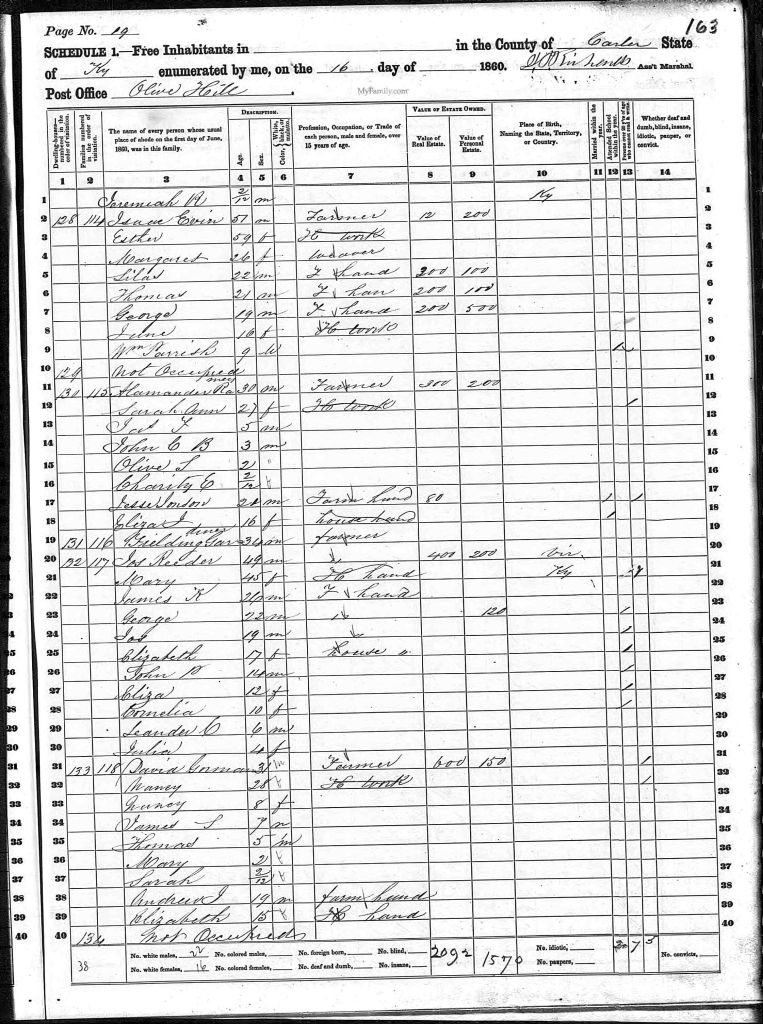 Page No. 19
163
SCHEDULE 1.—Free Inhabitants in in the County of Carter State
of Ky enumerated by me, on the 16 day of 1860. Ass't Marshal.
Post Office Olive Hill
MyFamily.com
Dwelling-houses—numbered in the order of visitation.
Families numbered in the order of visitation.
The name of every person whose usual place of abode on the first day of June, 1860, was in this family.
DESCRIPTION.
Age.
Sex.
Color, White, black, or mulatto.
Profession, Occupation, or Trade of each person, male and female, over 15 years of age.
VALUE OF ESTATE OWNED.
Value of Real Estate.
Value of Personal Estate.
Place of Birth, Naming the State, Territory, or Country.
Married within the year.
Attended School within the year.
Persons over 20 years of age who cannot read & write.
Whether deaf and dumb, blind, insane, idiotic, pauper, or convict.
1 2 3 4 5 6 7 8 9 10 11 12 13 14
1 Jeremiah R 2/12 m Ky 1
2 128 114 Isaac Ervin 51 m Farmer 12 200 2
3 Esther 59 f H work 3
4 Margaret 26 f weaver 4
5 Silas 22 m F hand 200 100 5
6 Thomas 21 m F han 200 100 6
7 George 19 m F hand 200 500 7
8 June 16 f H work 8
9 Wm Parrish 9 9
10 129 Not Occupied 10
11 130 115 Alamander Ramey 30 m Farmer 300 200 11
12 Sarah Ann 27 f H work / 12
13 Jas F 5 m 13
14 John C B 3 m 14
15 Olive S 2 " 15
16 Charity E 2/12 f 16
17 Jesse Jonson 21 m Farm hand 80 / / 17
18 Eliza J 16 f house hand / 18
19 131 116 Fielding 34 m farmer 19
20 132 117 Jos Reeder 49 m 400 200 Vir 20
21 Mary 45 f H hand Ky 21
22 James K 26 m F hand 22
23 George 22 m 120 / 23
24 Jos 19 m / 24
25 Elizabeth 17 f house / 25
26 John P 14 m / 26
27 Eliza 12 f / 27
28 Cornelia 10 f / 28
29 Leander C 6 m 29
30 Julia 4 f 30
31 133 118 David Gorman 31 m Farmer 600 150 / 31
32 Nancy 28 f H work / 32
33 8 f 33
34 James S 7 m 34
35 Thomas 5 m 35
36 Mary 2 f 36
37 Sarah 2/12 f 37
38 Andrew J 19 m farm hand 38
39 Elizabeth 15 f H hand 39
40 134 Not Occupied 40
38 No. white males, 22 No. colored males, No. foreign born, No. blind, 2092 1570 No. idiotic, 2 7 5 No. convicts,
No. white females, 16 No. colored females, No. deaf and dumb, No. insane, No. paupers,